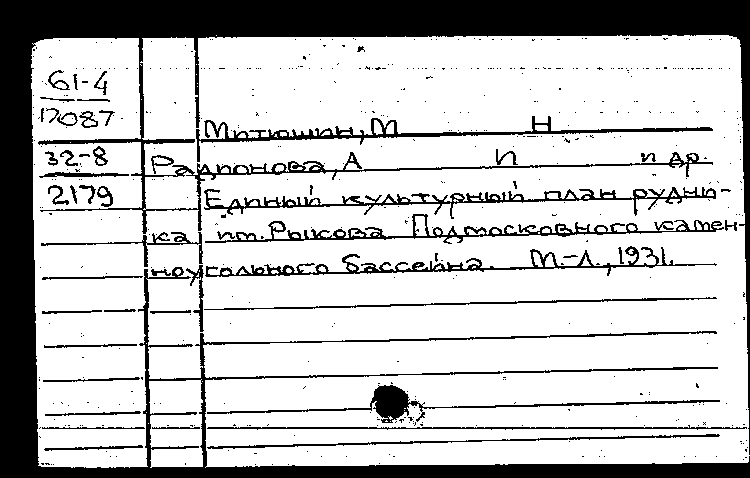 61-4
17087
Митюшин, М Н
32-8
2179
Радионова, А И и др.
Единый культурный план рудни-
ка им. Рыкова Подмосковного камен-
ноугольного бассейна. М.-Л., 1931.